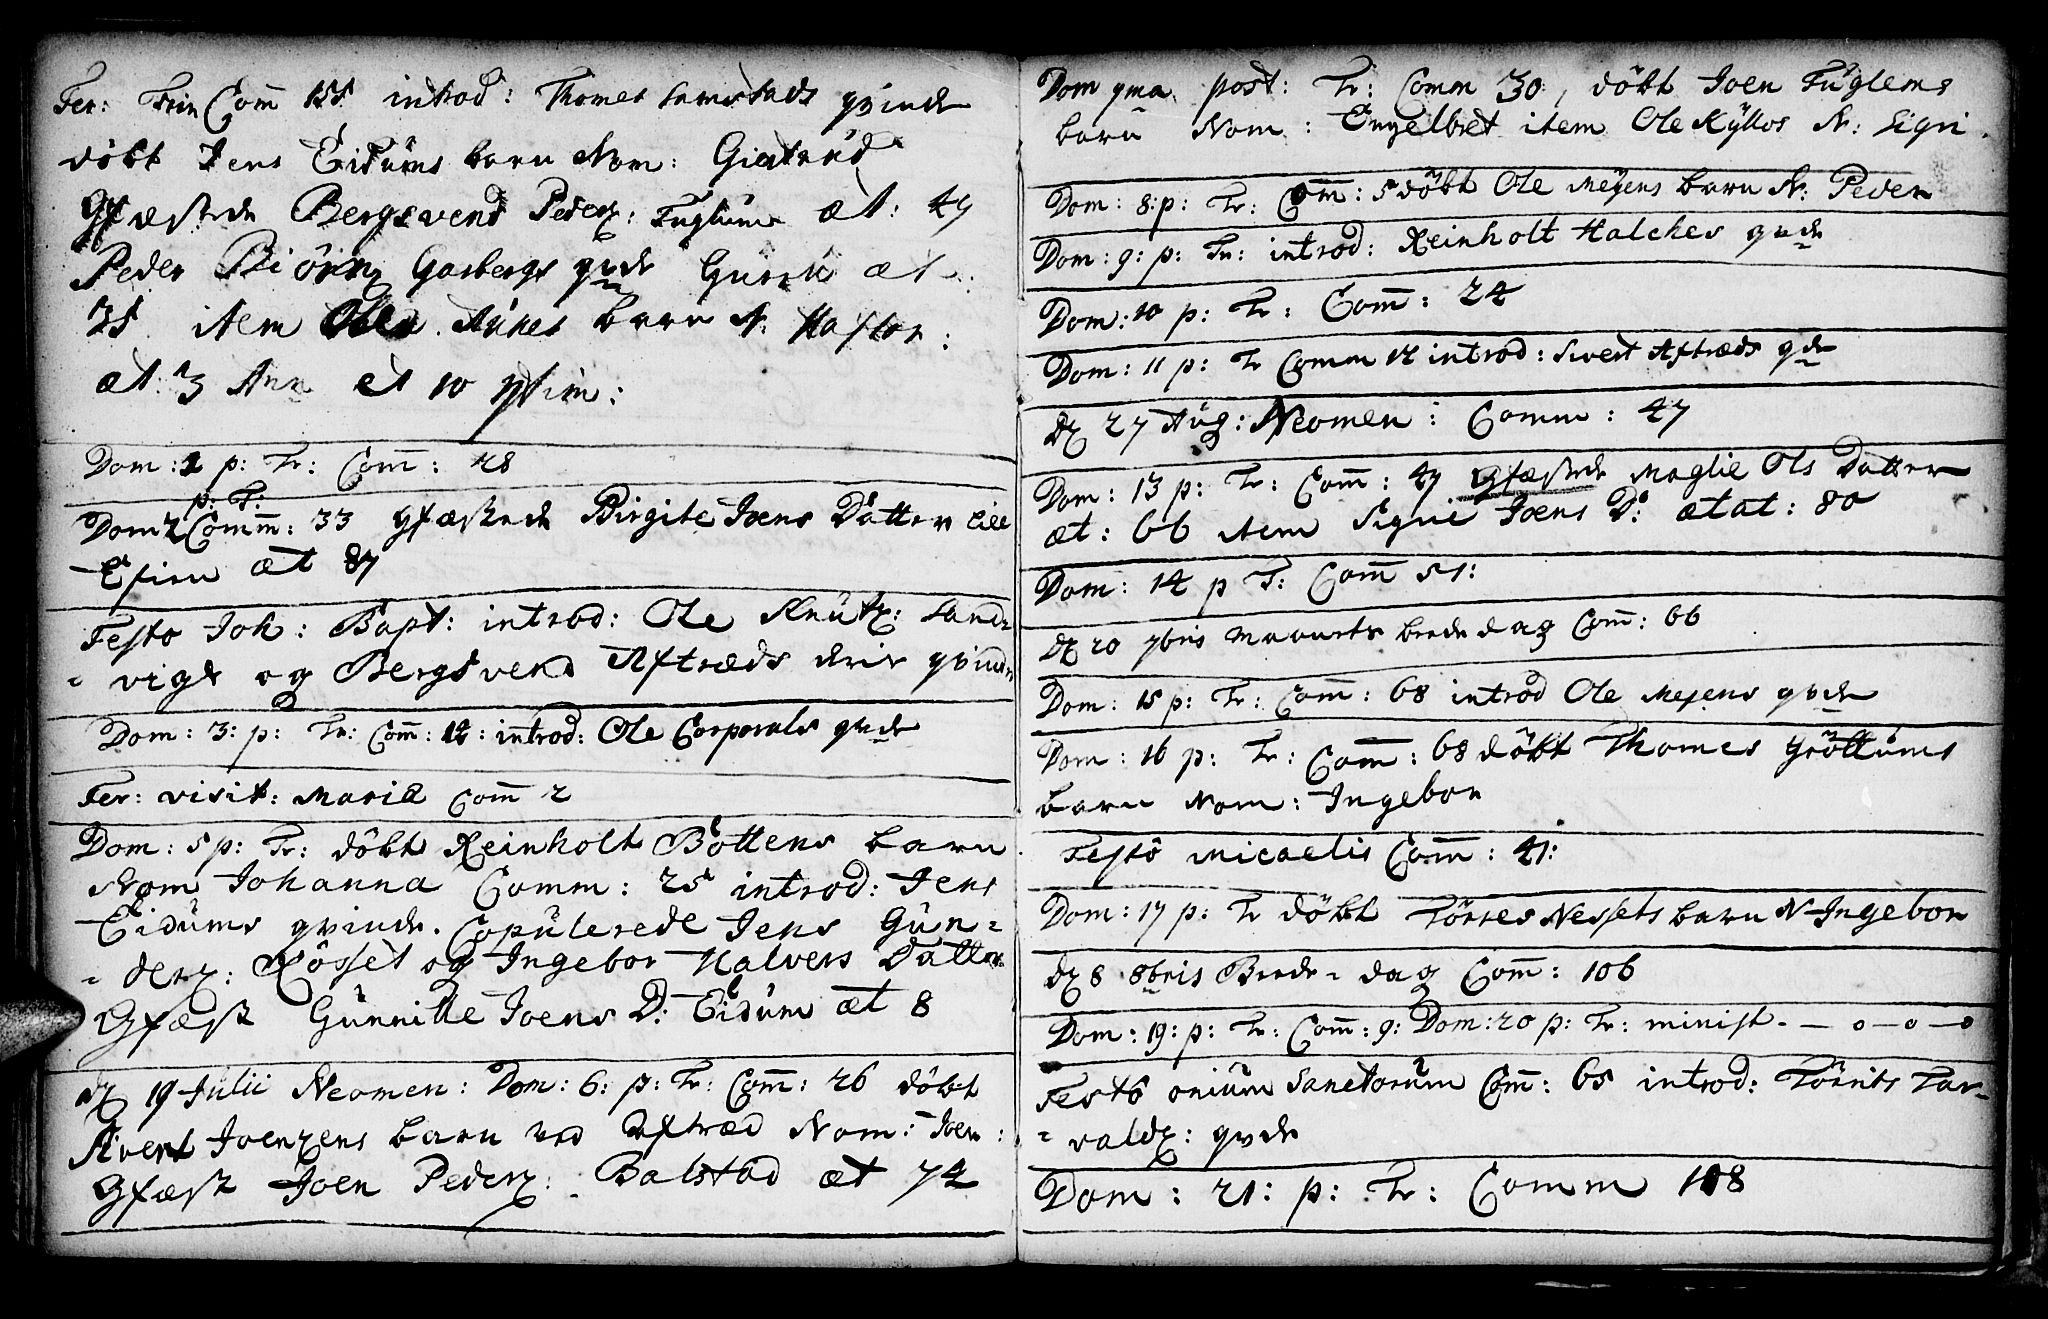 Fer: Trin Com̄ 155 introd: Thomes Lerstads qvinde
döbt Jens Eidums barn Nom: Giertrud
Gfæstede Bergsvend Peders: Fuglum æt: 49
Peder Biörn Garbergs qvde Guru æt
35 item Ole Aunes barn N: Hafton:
æt 3 Ann et 10 Sptim:
Dom: 1 p: Tr: Com̄: 28
p: T:
Dom 2 Comm: 33 Gfæstede Birgite Joens Datter lill
Efien æt 87
Festo Joh: Bapt: introd: Ole Knutz: Sand=
= vigs og Bergsvend Aftræds deris qvinder
Dom: 3: p: Tr: Com̄: 12: introd: Ole Corporals qvde
Fer: visit: Mariæ Com̄ 2
Dom: 5 p: Tr: döbt Reinholt Bottens barn
Nom Johanna Comm: 25 introd: Jens
Eidums qvinde. Copulerede Jens Gun=
= derz: Rösset og Ingebor Halvers Datter
Gfæst Gunnille Joens D: Eidum æt 8
dz 19 Julii Neomen: Dom: 6: p: Tr: Com̄: 26 döbt
Sivert Joenzens barn ved Aftræd Nom: Joen:
Gfæst Joen Pederz: Balstad æt 74
Dom 7ma post: Tr: Comm 30, döbt Joen Fuglems
barn Nom: Engelbret item Ole Kyllos N: Sigri.
Dom: 8: p: Tr: Com̄: 5 döbt Ole Mejens barn N: Peder
Dom: 9: p: Tr: introd: Reinholt Halches qvde
Dom: 10 p: Tr: Com̄: 24
Dom: 11 p: Tr Comm 12 introd: Sivert Aftræds qde
dz 27 Aug: Neomen: Comm: 47
Dom: 13 p: Tr: Com̄: 47 Gfæstede Maglie Ols Datter
æt: 66 item Signi Joens D: ætat: 80
Dom: 14 p T: Com̄ 51:
dz 20 7bris Maanets bededag Com̄: 66
Dom: 15 p: Tr: Com̄: 68 introd Ole Mejens qvde
Dom: 16 p: Tr: Com̄: 68 döbt Thomes Gröttums
barn Nom: Ingebor
Festo Micaelis Com̄: 41:
Dom: 17 p: Tr döbt Törres Nessets barn N Ingebor
dz 8 8bris Bede=dag Com̄: 106
Dom: 19: p: Tr: Com̄: 9: Dom: 20 p: Tr: minist. — o — o — o
Festo omium Sanctorum Com̄: 65 introd: Törris Tar=
= valdz: qvde
Dom: 21: p: Tr: Comm 108